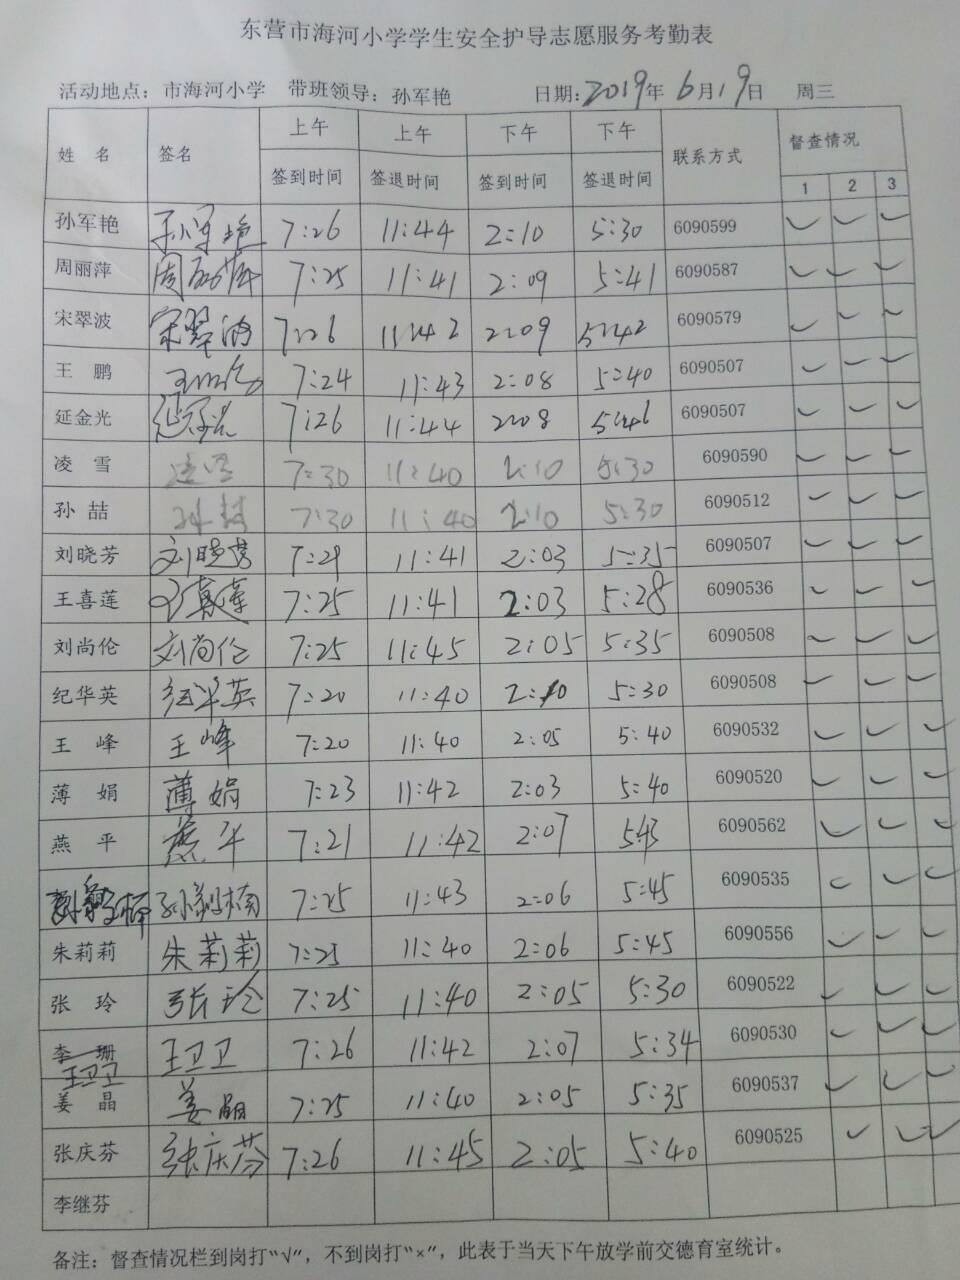 东营市海河小学学生安全护导志愿服务考勤表
活动地点：市海河小学 带班领导：孙军艳 日期：2019年6月19日 周三
姓 名 签名 上午 上午 下午 下午 联系方式 督查情况
签到时间 签退时间 签到时间 签退时间 1 2 3
孙军艳 孙军艳 7:26 11:44 2:10 5:30 6090599 ✓ ✓ ✓
周丽萍 周丽萍 7:25 11:41 2:09 5:41 6090587 ✓ ✓ ✓
宋翠波 宋翠波 7:26 11:42 2:09 5:42 6090579 ✓ ✓ ✓
王 鹏 7:24 11:43 2:08 5:40 6090507 ✓ ✓ ✓
延金光 延金光 7:26 11:44 2:08 5:46 6090507 ✓ ✓ ✓
凌 雪 凌雪 7:30 11:40 2:10 5:30 6090590 ✓ ✓ ✓
孙 喆 孙喆 7:30 11:40 2:10 5:30 6090512 ✓ ✓ ✓
刘晓芳 刘晓芳 7:29 11:41 2:03 5:35 6090507 ✓ ✓ ✓
王喜莲 王喜莲 7:25 11:41 2:03 5:28 6090536 ✓ ✓ ✓
刘尚伦 刘尚伦 7:25 11:45 2:05 5:35 6090508 ✓ ✓ ✓
纪华英 纪华英 7:20 11:40 2:10 5:30 6090508 ✓ ✓ ✓
王 峰 王峰 7:20 11:40 2:05 5:40 6090532 ✓ ✓ ✓
薄 娟 薄娟 7:23 11:42 2:03 5:40 6090520 ✓ ✓ ✓
燕 平 燕平 7:21 11:42 2:07 5:43 6090562 ✓ ✓ ✓
7:25 11:43 2:06 5:45 6090535 ✓ ✓ ✓
朱莉莉 朱莉莉 7:25 11:40 2:06 5:45 6090556 ✓ ✓ ✓
张 玲 张玲 7:25 11:40 2:05 5:30 6090522 ✓ ✓ ✓
李 珊 王卫卫 7:26 11:42 2:07 5:34 6090530 ✓ ✓ ✓
王卫卫
姜 晶 姜晶 7:25 11:40 2:05 5:35 6090537 ✓ ✓ ✓
张庆芬 张庆芬 7:26 11:45 2:05 5:40 6090525 ✓ ✓ ✓
李继芬
备注：督查情况栏到岗打“√”，不到岗打“×”，此表于当天下午放学前交德育室统计。